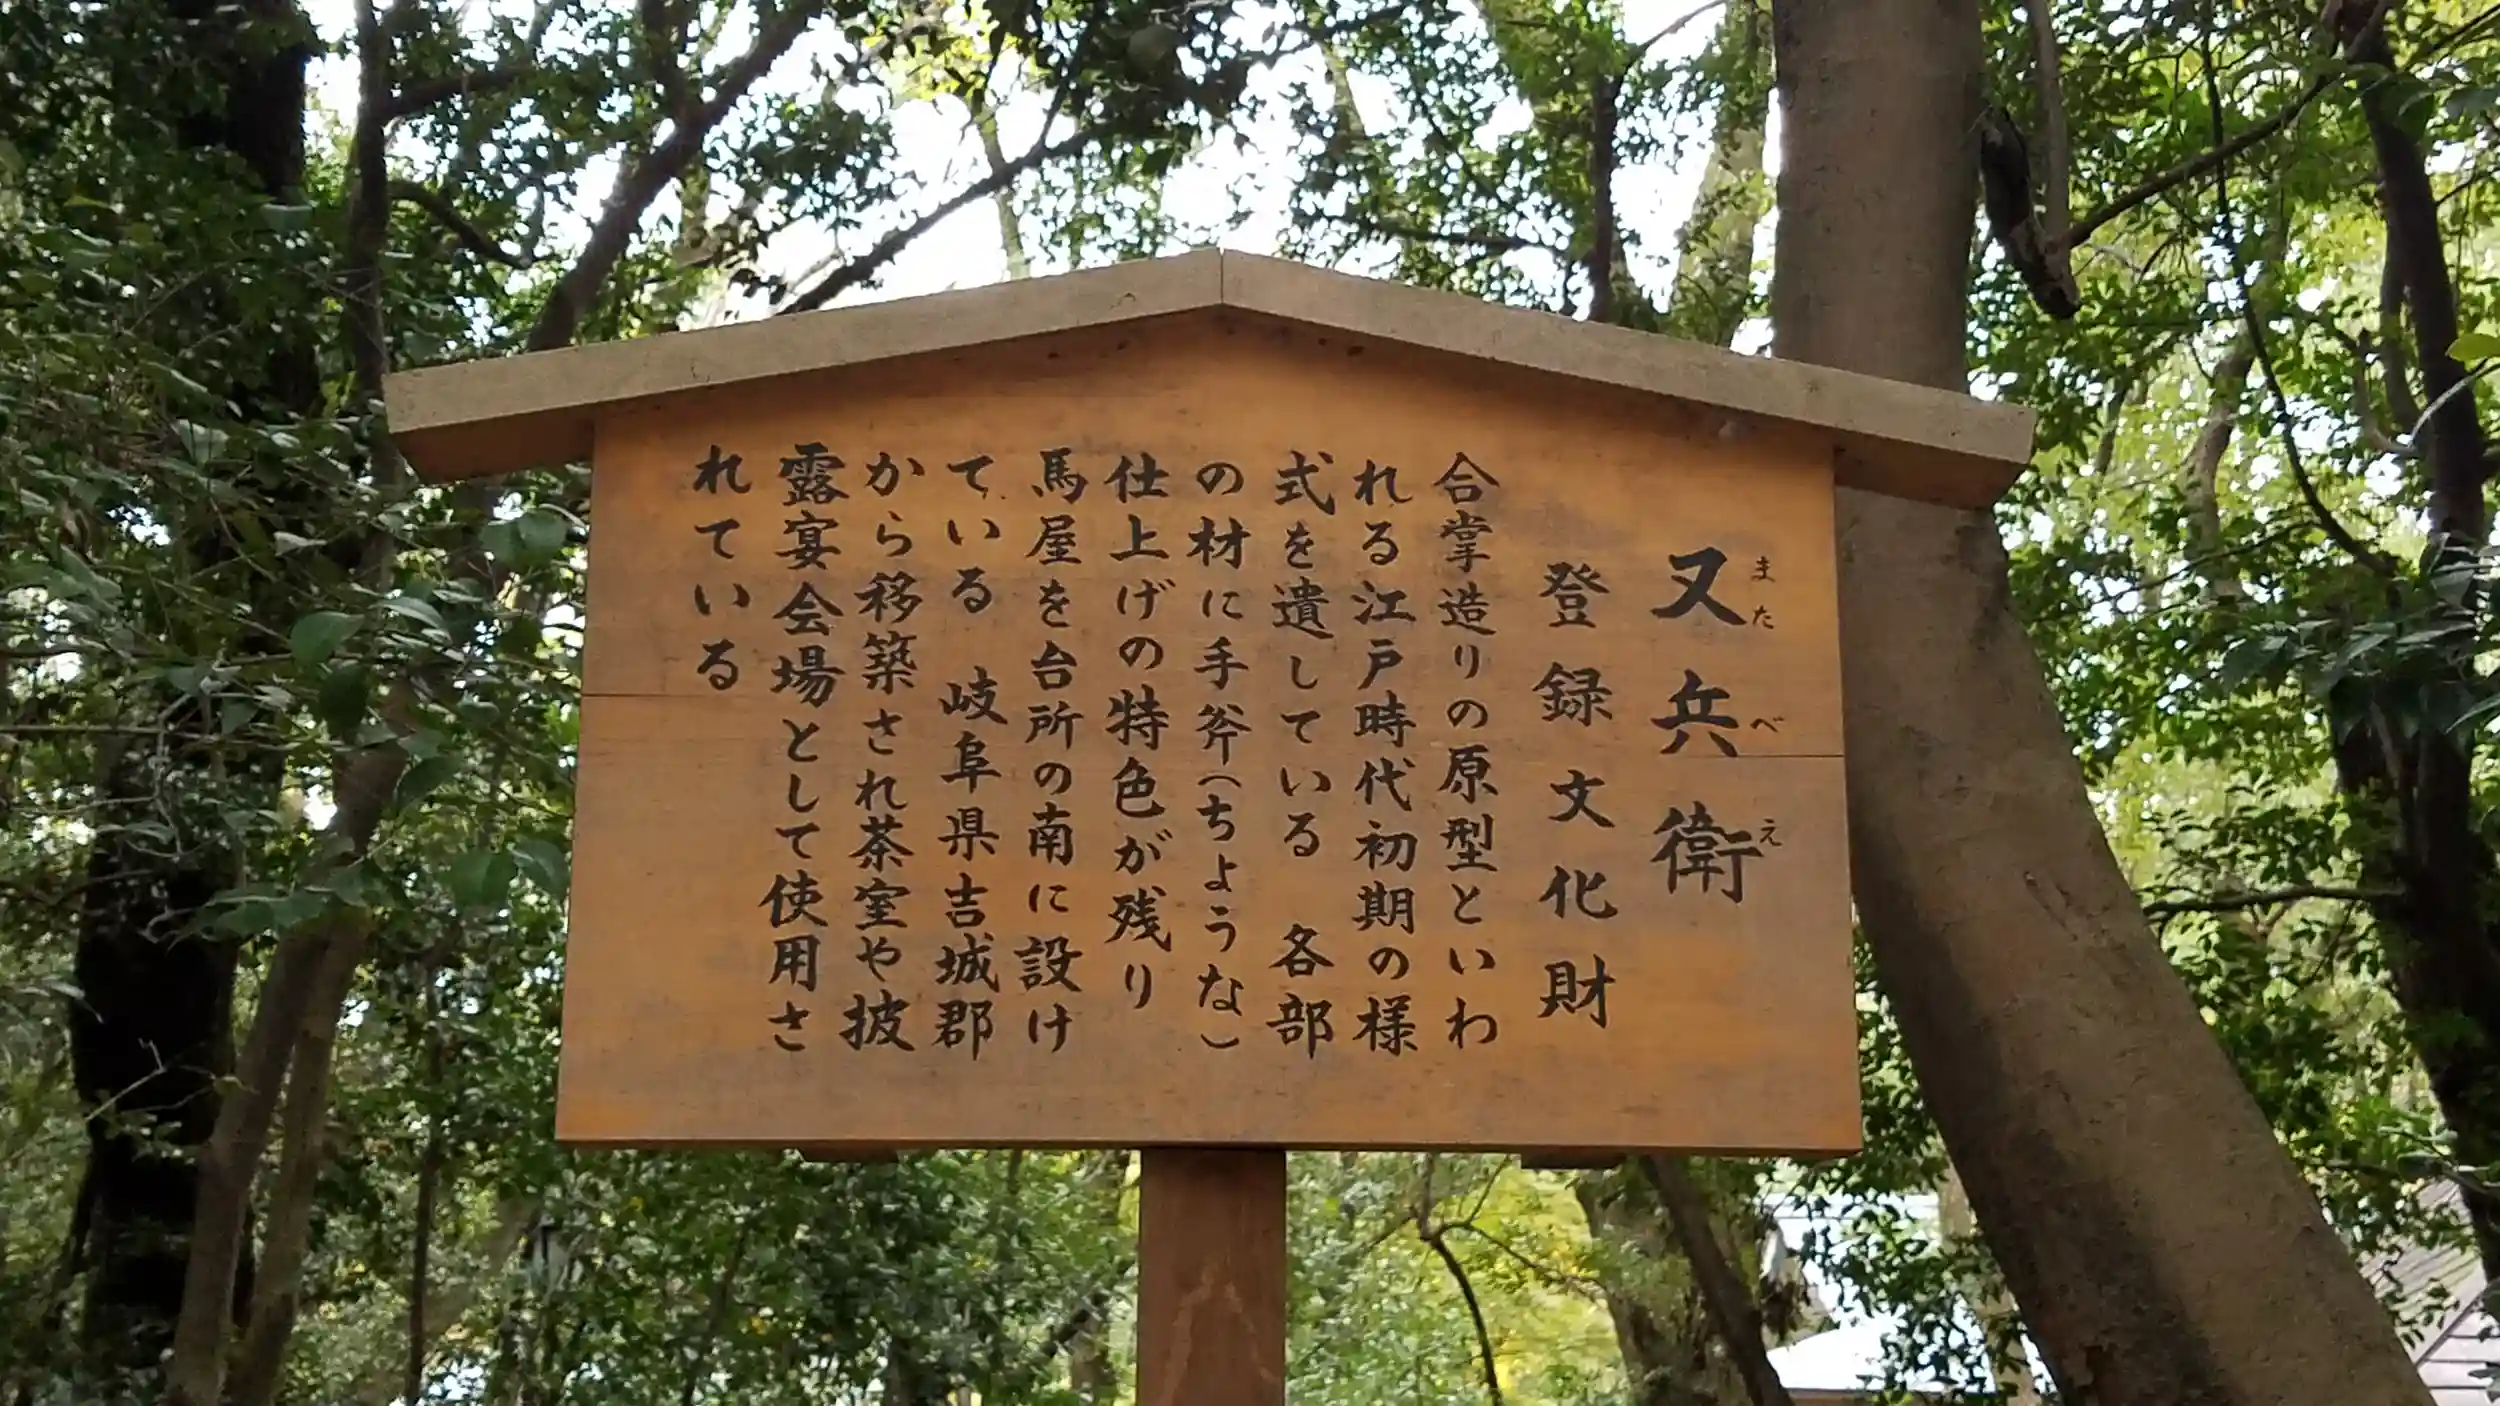 又兵衛
また べ え
登録文化財
合掌造りの原型といわ
れる江戸時代初期の様
式を遺している 各部
の材に手斧(ちょうな)
仕上げの特色が残り
馬屋を台所の南に設け
ている 岐阜県吉城郡
から移築され茶室や披
露宴会場として使用さ
れている